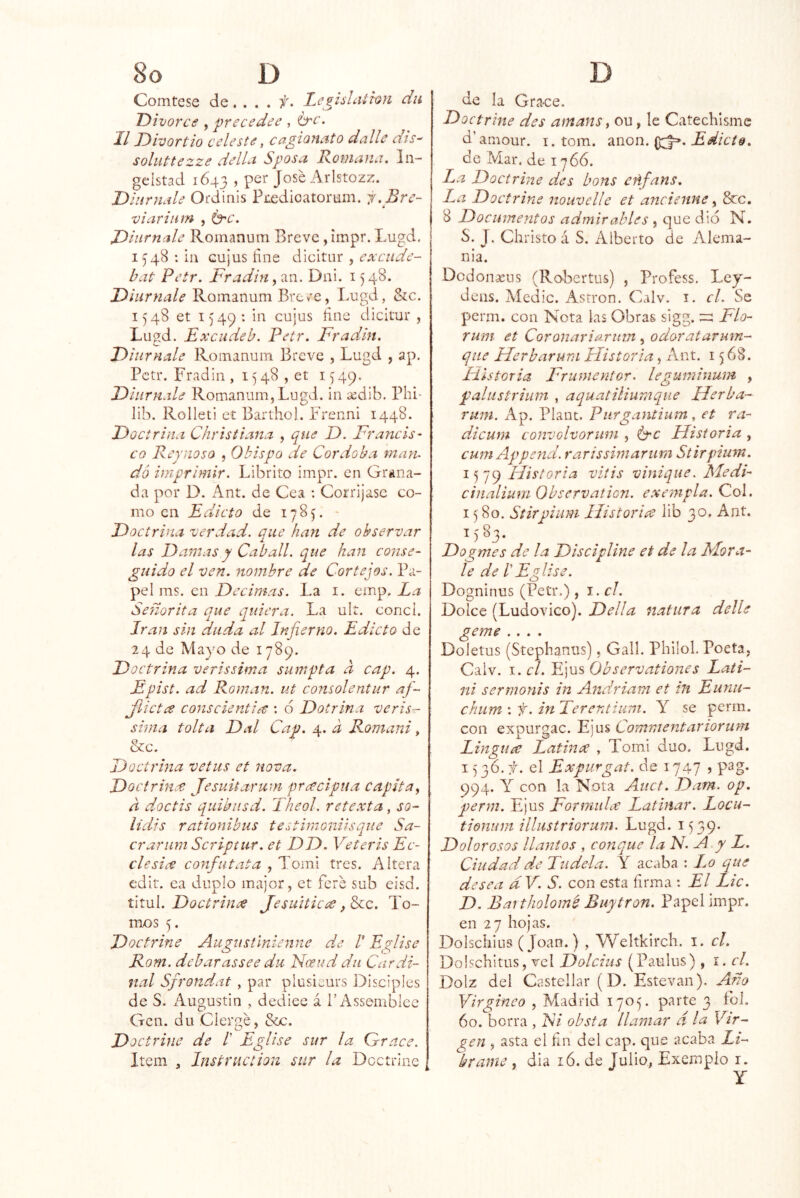 80 D
Comtese de. . . . ỳ. Legislation du
Divorce , precedee , &c.
Il Divortio celeste, cagionato dalle dis-
soluttezze della Sposa Romana. In-
gelstad 1643 , per Josè Arlstozz.
Diurnale Ordinis Prædicatorum. ỳ. Bre-
viarium , &c.
Diurnale Romanum Breve , impr. Lugd.
1548 : in cujus fine dicitur , excude-
bat Petr. Fradin, an. Dni. 1548.
Diurnale Romanum Breve, Lugd, &c.
1548 et 1549 : in cujus fine dicitur ,
Lugd. Excudeb. Petr. Fradin.
Diurnale Romanum Breve , Lugd , ap.
Petr. Fradin , 1548 , et 1549.
Diurnale Romanum, Lugd. in ædib. Phi-
lib. Rolleti et Barthol. Frenni 1448.
Doctrina Christiana , que D. Francis-
co Reynoso , Obispo de Cordoba man-
dó imprimir. Librito impr. en Grana-
da por D. Ant. de Cea : Corrijase co-
mo en Edicto de 1785.
Doctrina verdad. que han de observar
las Damas y Caball. que han conse-
guido el ven. nombre de Cortejos. Pa-
pel ms. en Decimas. La 1. emp. La
Señorita que quiera. La ult. concl.
Iran sin duda al Infierno. Edicto de
24 de Mayo de 1789.
Doctrina verissima sumpta à cap. 4.
Epist. ad Roman. ut consolentur af-
flictæ conscientiæ : ó Dotrina veris-
sima tolta Dal Cap. 4. à Romani ,
&c.
Doctrina vetus et nova.
Doctrinæ Jesuitarum præcipua capita,
à doctis quibusd. Theol. retexta , so-
lidis rationibus testimoniisque Sa-
crarum Scriptur. et DD. Veteris Ec-
clesiæ confutata , Tomi tres. Altera
edit. ea duplo major, et ferè sub eisd.
titul. Doctrinæ Jesuiticæ , &c. To-
mos 5.
Doctrine Augustinienne de l' Eglise
Rom. debarassee du Nœud du Cardi-
nal Sfrondat , par plusieurs Disciples
de S. Augustin , dediee á l'Assemblee
Gen. du Clergè, &c.
Doctrine de l' Eglise sur la Grace.
Item , Instruction sur la Doctrine
D
de la Grace.
Doctrine des amans, ou, le Catechisme
d'amour. 1. tom. anon. ☞. Edicto.
de Mar. de 1766.
La Doctrine des bons enfans.
La Doctrine nouvelle et ancienne , &c.
8 Documentos admirables , que dió N.
S. J. Christo á S. Alberto de Alema-
nia.
Dodonæus (Robertus) , Profess. Ley-
dens. Medic. Astron. Calv. 1. cl. Se
perm. con Nota las Obras sigg. = Flo-
rum et Coronariarum , odoratarum-
que Herbarum Historia , Ant. 1568.
Historia Frumentor. leguminum ,
palustrium , aquatiliumque Herba-
rum. Ap. Plant. Purgantium , et ra-
dicum convolvorum , &c Historia ,
cum Append. rarissimarum Stirpium.
1579 Historia vitis vinique. Medi-
cinalium Observation. exempla. Col.
1580. Stirpium Historiæ lib 30. Ant.
1583.
Dogmes de la Discipline et de la Mora-
le de l' Eglise.
Dogninus (Petr.) , 1. cl.
Dolce (Ludovico). Della natura delle
geme . . . .
Doletus (Stephanus) , Gall. Philol. Poeta,
Calv. 1. cl. Ejus Observationes Lati-
ni sermonis in Andriam et in Eunu-
chum : ỳ. in Terentium. Y se perm.
con expurgac. Ejus Commentariorum
Linguæ Latinæ , Tomi duo. Lugd.
1536. ỳ. el Expurgat. de 1747 , pag.
994. Y con la Nota Auct. Dam. op.
perm. Ejus Formulæ Latinar. Locu-
tionum illustriorum. Lugd. 1539.
Dolorosos llantos , con que la N. A y L.
Ciudad de Tudela. Y acaba : Lo que
desea á V. S. con esta firma : El Lic.
D. Bartholomé Buytron. Papel impr.
en 27 hojas.
Dolschius (Joan.) , Weltkirch. 1. cl.
Dolschitus, vel Dolcius ( Paulus) , 1. cl.
Dolz del Castellar ( D. Estevan). Año
Virgineo , Madrid 1705. parte 3 fol.
60. borra , Ni obsta llamar á la Vir-
gen , asta el fin del cap. que acaba Li-
brame , dia 16. de Julio, Exemplo 1.
Y